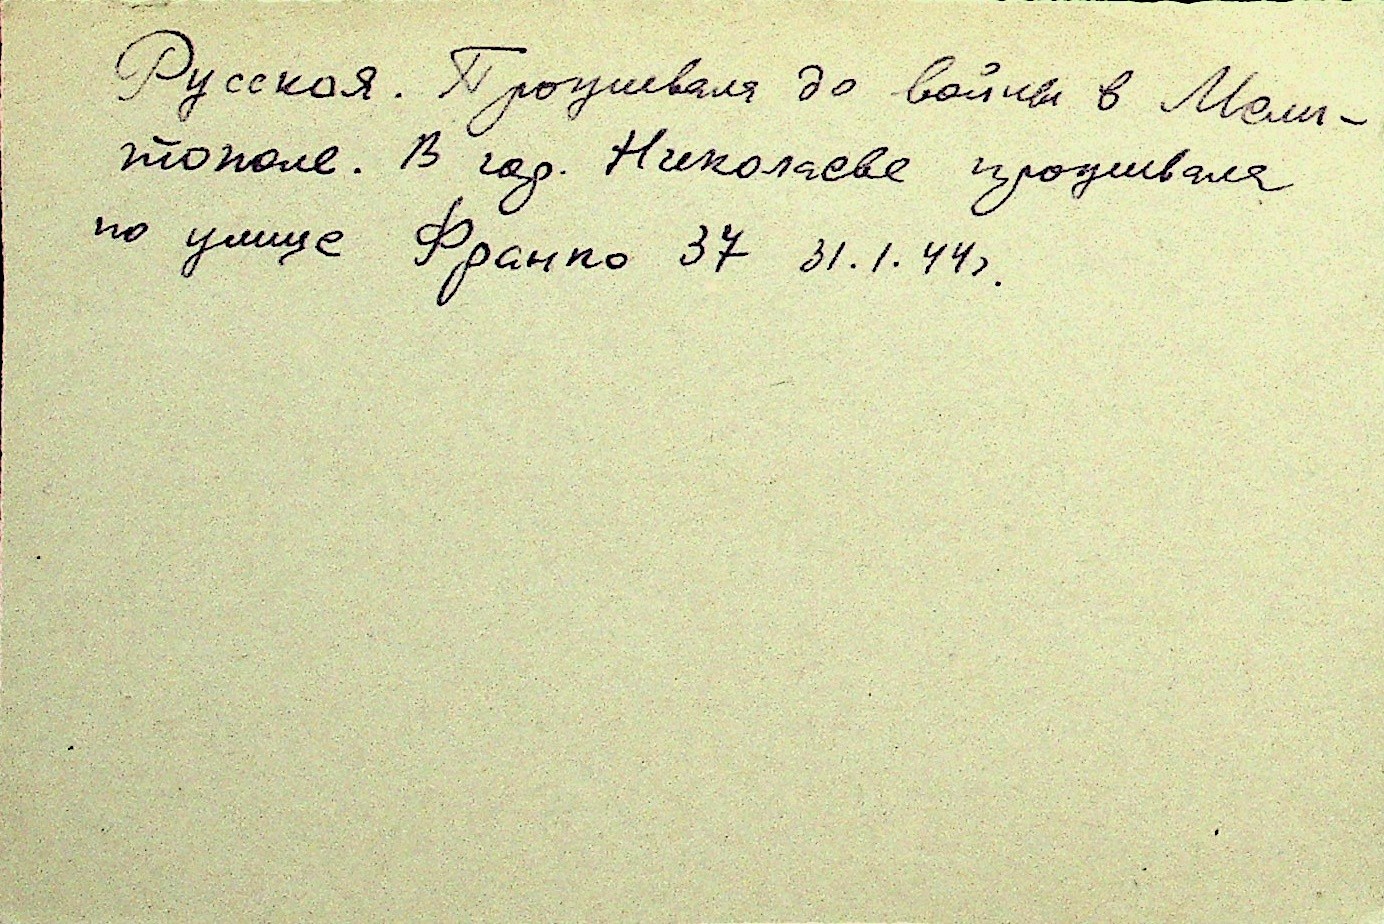 Русская. Проживала до войны в Мели-
тополе. В гор. Николаеве проживала
по улице Франко 37 31.1.44г.